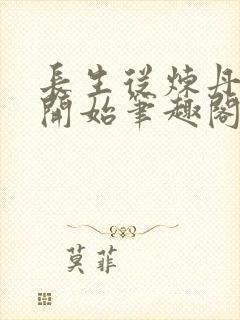 長生從煉丹
開始筆趣閣
莫菲